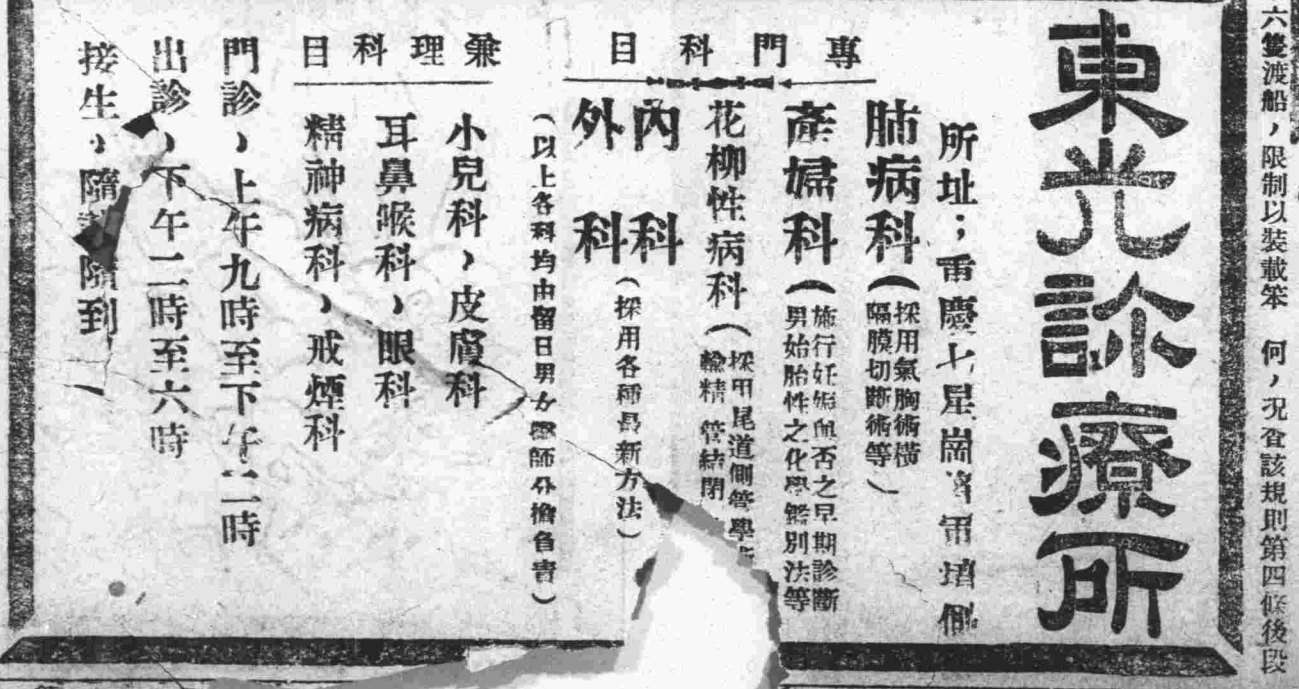 六隻渡船，限制以裝載笨　何，況查該規則第四條後段
東光診療所
所址；重慶七星崗
專門科目
肺病科（採用氣胸術橫隔膜切斷術等）
產婦科（施行妊娠與否之早期診斷男始胎性之化學鑑別法等
花柳性病科（採用尾道側管學
輸精管結閉
內科
外科
（採用各種最新方法）
（以上各科均由留日男女醫師分擔負責）
兼理科目
小兒科、皮膚科
耳鼻喉科、眼科
精神病科、戒煙科
門診、上午九時至下午二時
出診、下午二時至六時
接生、隨 隨到